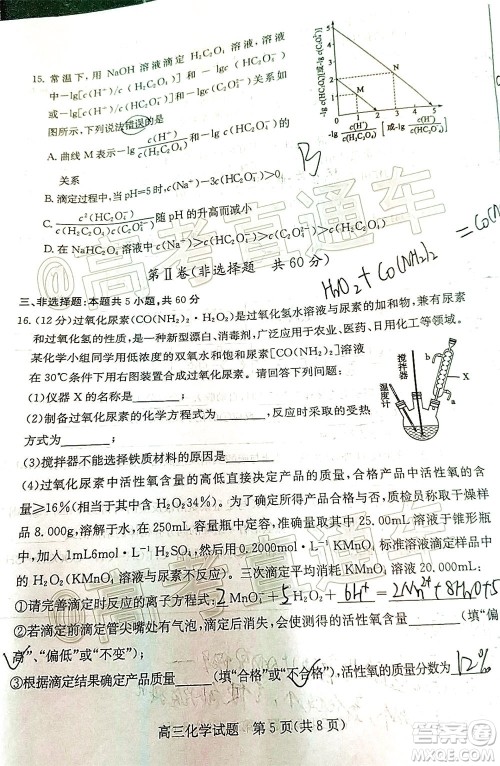 15. 常温下，用 NaOH 溶液滴定 H₂C₂O₄ 溶液，溶液
中-lg[c(H⁺)/c(H₂C₂O₄)]和-lgc(HC₂O₄⁻)
或-lg[c(H⁺)/c(HC₂O₄⁻)]和-lgc(C₂O₄²⁻)关系如
图所示，下列说法错误的是
A. 曲线 M 表示-lg c(H⁺)/c(H₂C₂O₄)和-lgc(HC₂O₄⁻)
关系
B. 滴定过程中，当 pH=5 时，c(Na⁺)-3c(HC₂O₄⁻)>0
C. c²(HC₂O₄⁻)/c(H₂C₂O₄)c(C₂O₄²⁻) 随 pH 的升高而减小
D. 在 NaHC₂O₄ 溶液中 c(Na⁺)>c(HC₂O₄⁻)>c(C₂O₄²⁻)>c(H₂C₂O₄)
-lgc(HC₂O₄⁻)[或-lgc(C₂O₄²⁻)]
5
4
3
2
1
0
M
N
1 2 3 4 5
-lg c(H⁺)/c(H₂C₂O₄) [或-lg c(H⁺)/c(HC₂O₄⁻)]
B
第Ⅱ卷(非选择题 共 60 分)
H₂O₂+CO(NH₂)₂ =CO(N
三、非选择题：本题共 5 小题，共 60 分
16. (12 分)过氧化尿素(CO(NH₂)₂·H₂O₂)是过氧化氢水溶液与尿素的加和物，兼有尿素
和过氧化氢的性质，是一种新型漂白、消毒剂，广泛应用于印染、农业、医药及日化领域。
某化学小组同学用低浓度的双氧水和饱和尿素[CO(NH₂)₂]溶液
在 30℃条件下用右图装置合成过氧化尿素。请回答下列问题：
搅拌器
X
a
b
(1)仪器 X 的名称是________；
(2)制备过氧化尿素的化学方程式为________，反应过程的受热
方式为________；
(3)搅拌器不能选择铁质材料的原因是________。
(4)过氧化尿素中活性氧含量的高低直接决定产品的质量，合格产品中活性氧的含
量≥16%(相当于含 H₂O₂34%)。为了检验合成产品的质量，质检员称量干燥样
品 8.000g，溶解于水，在 250mL 容量瓶中定容，准确量取其中 25.00mL 溶液于锥形瓶
中，加入 1mL6mol·L⁻¹H₂SO₄，然后用 0.2000mol·L⁻¹KMnO₄ 标准溶液滴定样品中
的 H₂O₂(KMnO₄ 溶液与尿素不反应)。三次滴定平均消耗 KMnO₄ 溶液 20.00mL：
①请完善滴定时反应的离子方程式：2MnO₄⁻+5H₂O₂+6H⁺=2Mn²⁺+8H₂O+5
②若滴定前滴定管尖嘴处有气泡，滴定后消失，则测得的活性氧含量________(填“偏
高”、“偏低”或“不变”)；
③根据滴定结果确定产品质量________(填“合格”或“不合格”)，活性氧的质量分数为12%
高三化学试题 第 5 页(共 8 页)
@高考直通车
@高考直通车